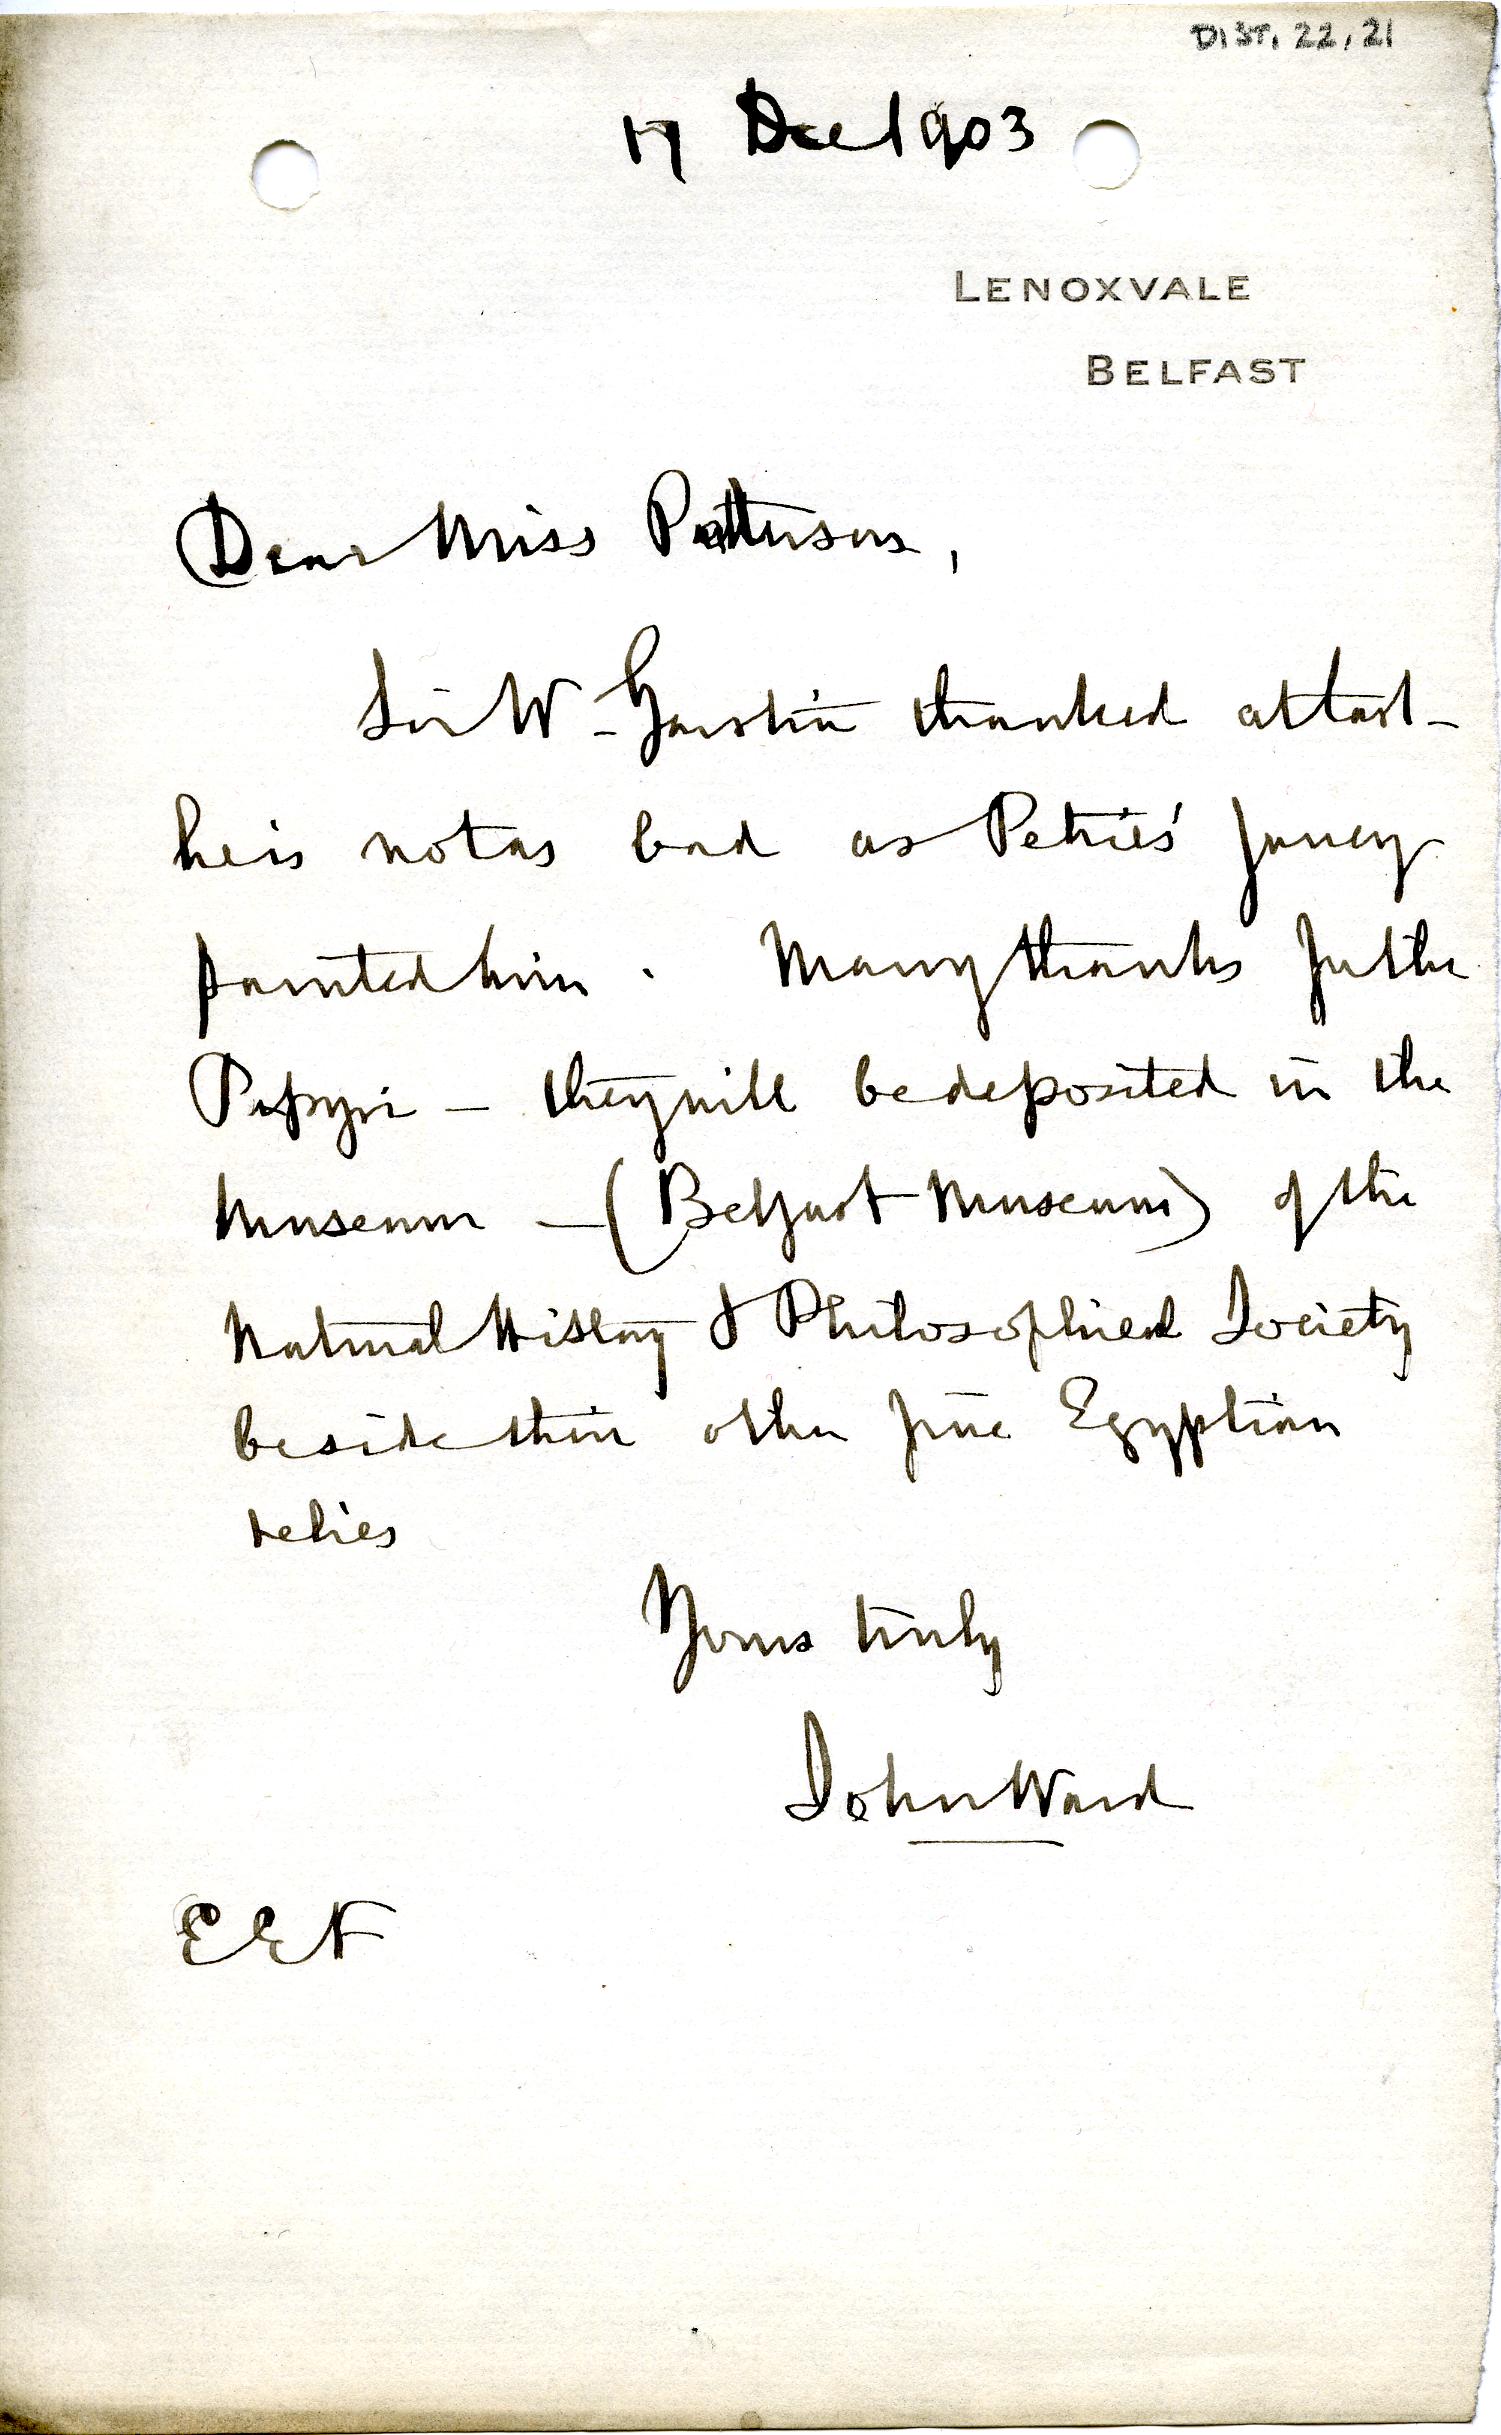 DIST. 22, 21
17 Dec 1903
LENOXVALE
BELFAST
Dear Miss Patterson,
Sir W - Garstin thanked at last -
he is not as bad as Petries' fancy
painted him. Many thanks for the
Papyri - they will be deposited in the
Museum - (Belfast Museum) of the
Natural History & Philosophical Society
beside their other fine Egyptian
relics
Yours truly
John Ward
EEF